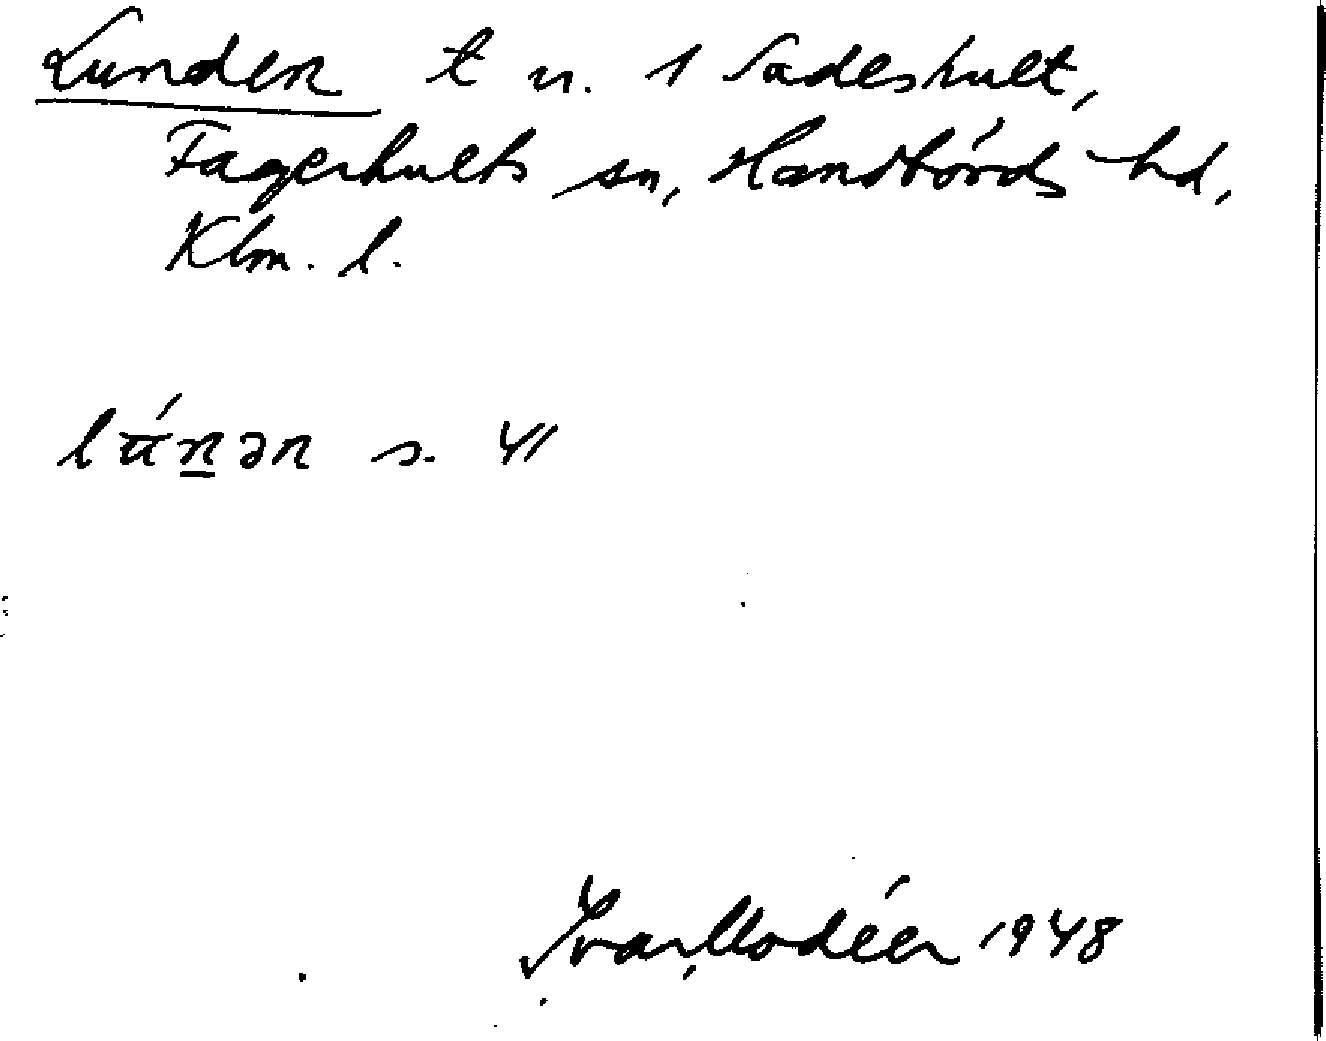 Lunden t u. 1 Sadeshult,
Fagerhults sn, Handbörds hd,
Klm. l.
lúnən s. 4//
Ivar Modéer 1948